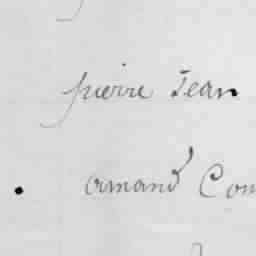 pierre Jean
armand Com